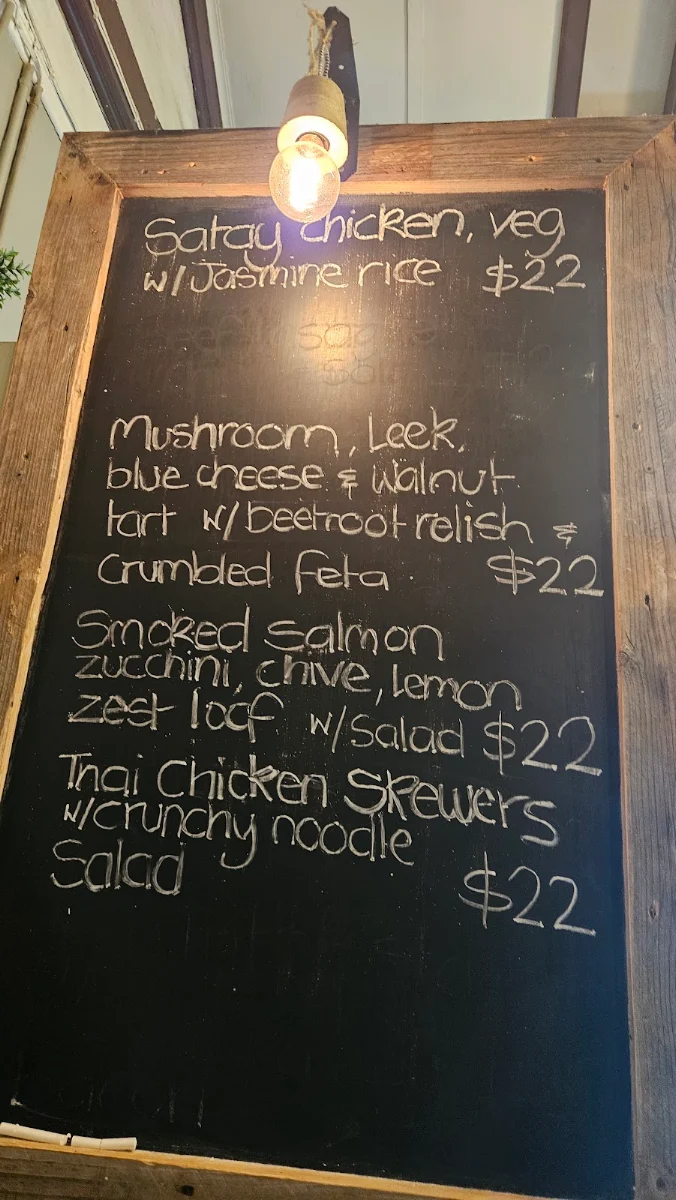 Satay chicken, veg
w/Jasmine rice $22
Mushroom, Leek,
blue cheese & walnut
tart w/beetroot relish &
crumbled feta $22
Smoked salmon
zucchini, chive, lemon
zest loaf w/salad $22
Thai Chicken Skewers
w/crunchy noodle
Salad $22